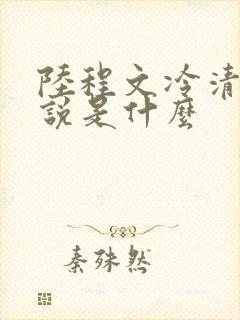 陸程文冷清
說是什麼
秦殊然